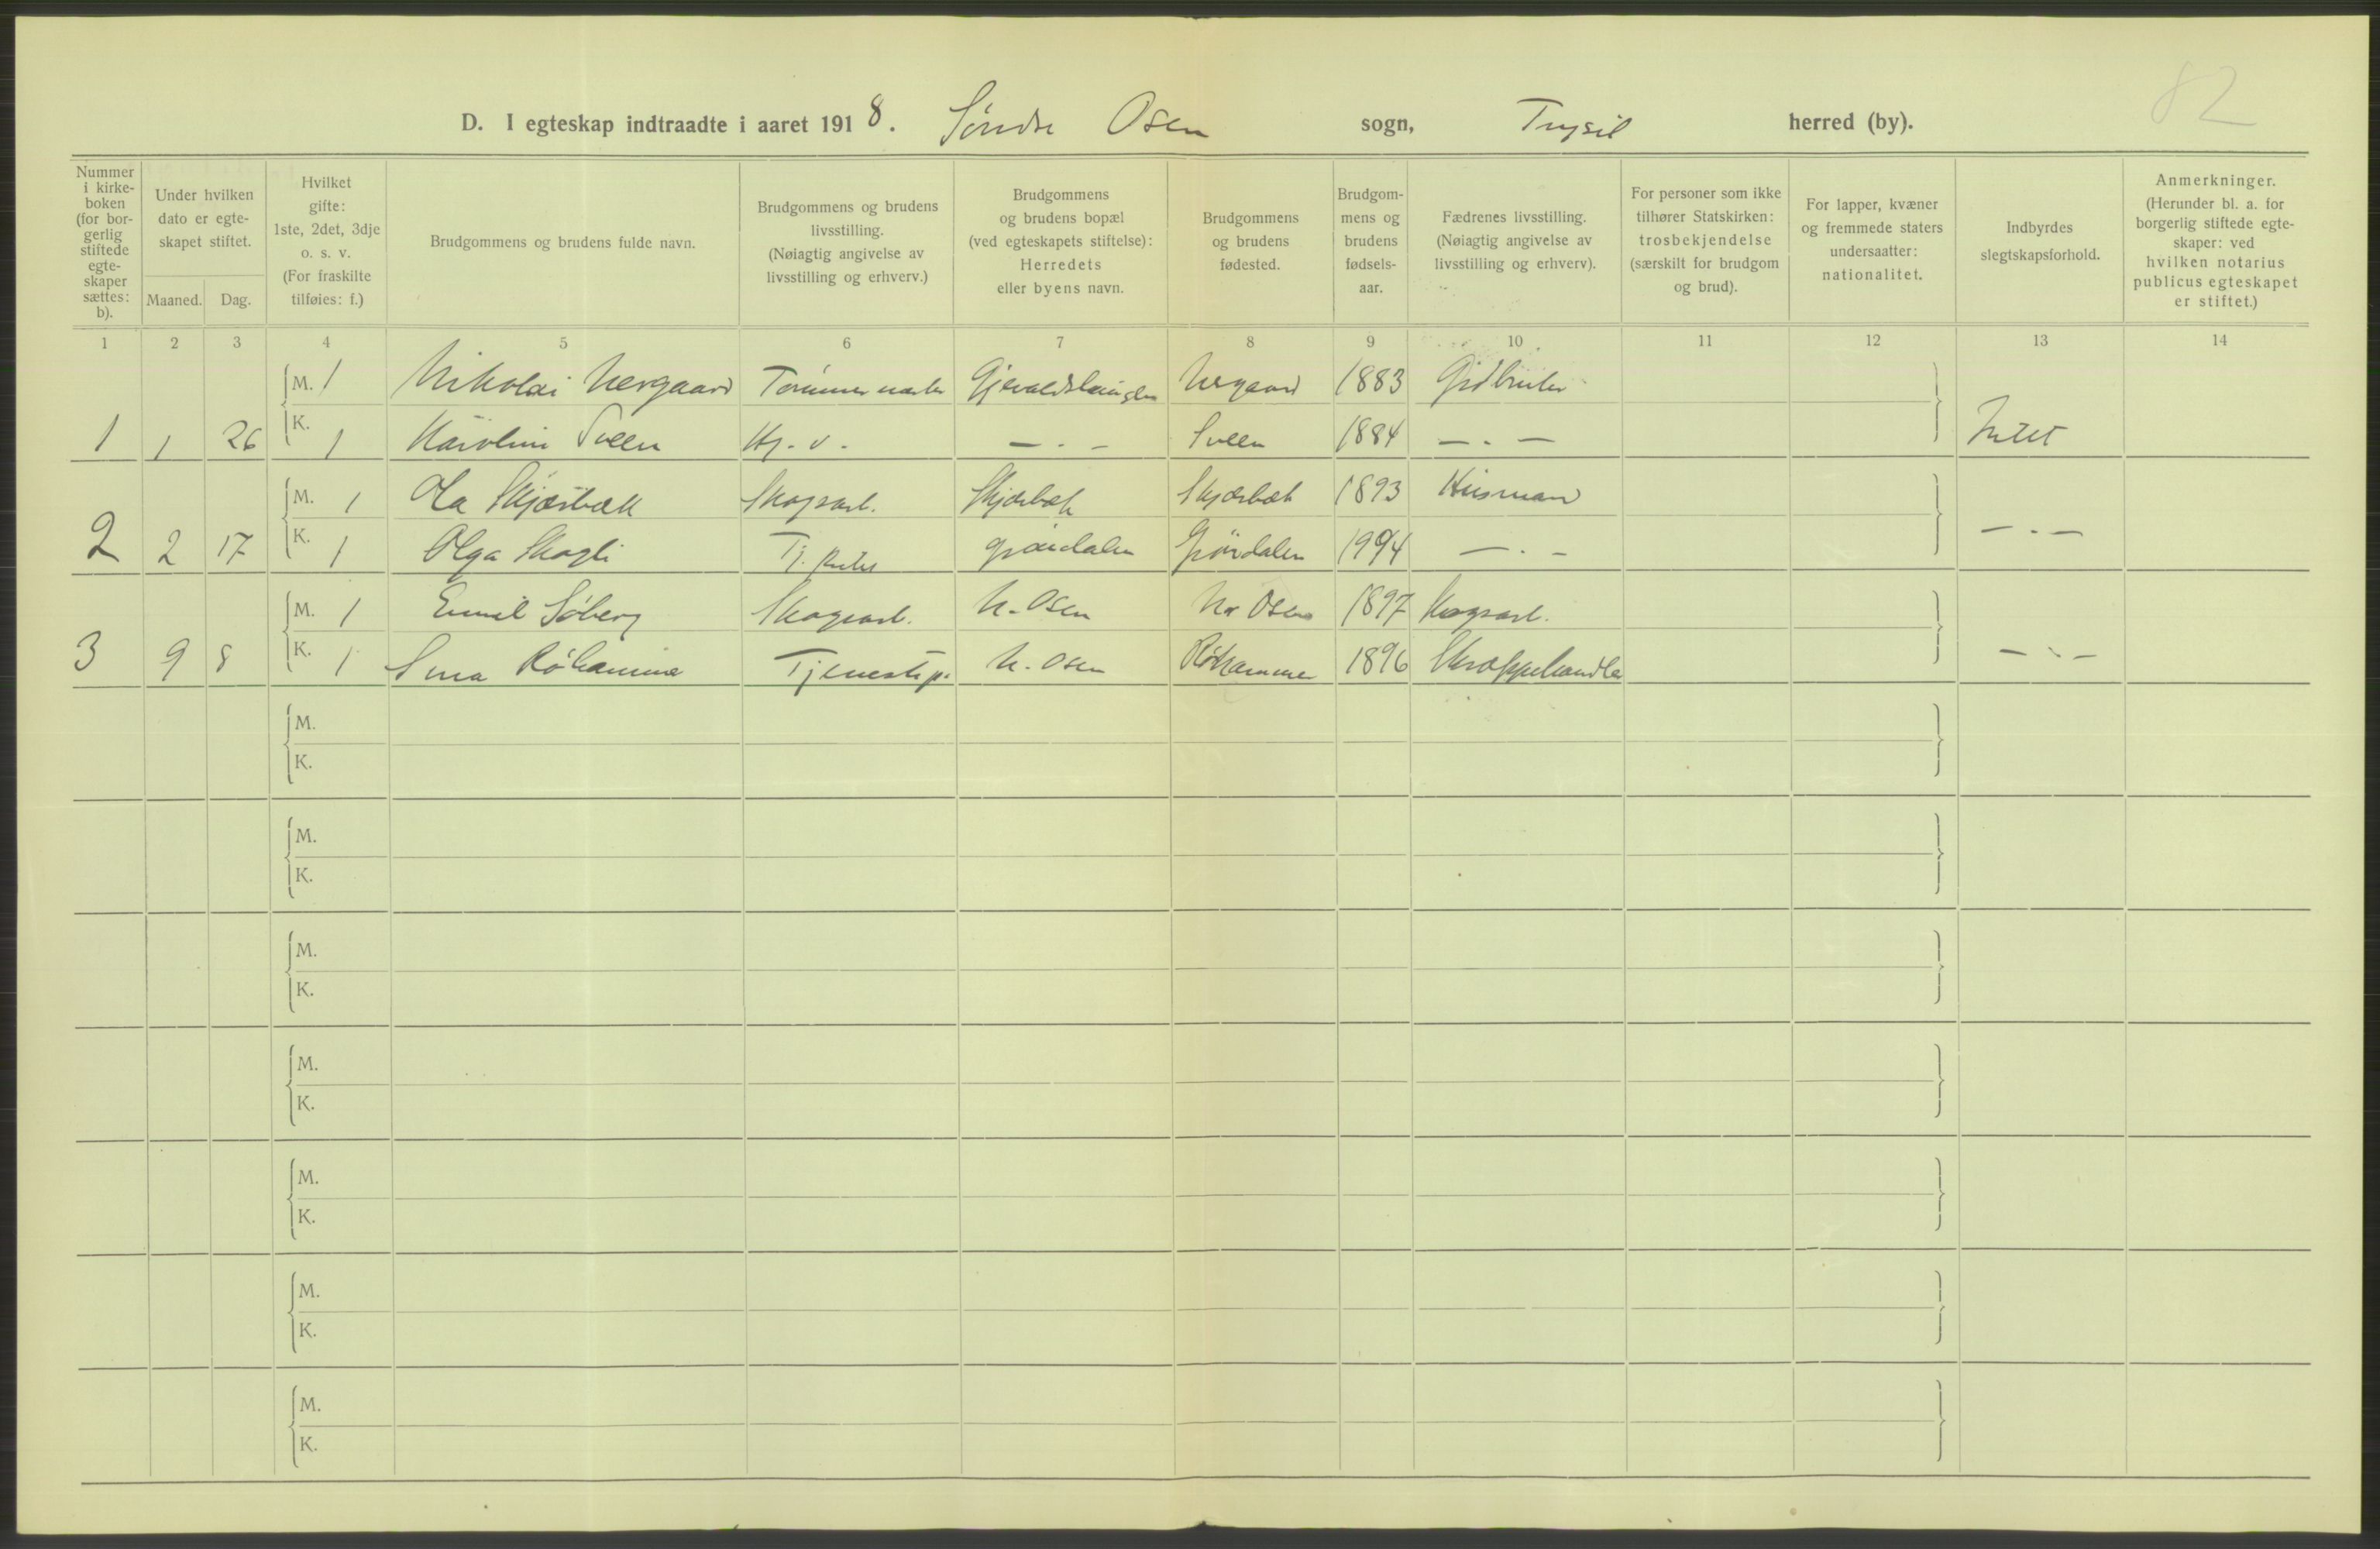 82
D. I egteskap indtraadte i aaret 1918. Søndre Osen sogn, Trysil herred (by).
Nummer i kirke- boken (for bor- gerlig stiftede egte- skaper sættes: b).
Under hvilken dato er egte- skapet stiftet.
Maaned. Dag.
Hvilket gifte: 1ste, 2det, 3dje o. s. v. (For fraskilte tilføies: f.)
Brudgommens og brudens fulde navn.
Brudgommens og brudens livsstilling. (Nøiagtig angivelse av livsstilling og erhverv.)
Brudgommens og brudens bopæl (ved egteskapets stiftelse): Herredets eller byens navn.
Brudgommens og brudens fødested.
Brudgom- mens og brudens fødsels- aar.
Fædrenes livsstilling. (Nøiagtig angivelse av livsstilling og erhverv).
For personer som ikke tilhører Statskirken: trosbekjendelse (særskilt for brudgom og brud).
For lapper, kvæner og fremmede staters undersaatter: nationalitet.
Indbyrdes slegtskapsforhold.
Anmerkninger. (Herunder bl. a. for borgerlig stiftede egte- skaper: ved hvilken notarius publicus egteskapet er stiftet.)
1 2 3 4 5 6 7 8 9 10 11 12 13 14
M. 1 Nikolai Nergaard 1883
1 1 26 K. 1 Karoline Sveen Hj. v. — . — Sveen 1884 — . — Intet
M. 1 Ola Skjærbæk Skogsarb. Skjærbæk Skjærbæk 1893 Husmand
2 2 17 K. 1 Olga Skogli Grøndalen Grøndalen 1994 — . — — . —
M. 1 Emil Søberg Skogsarb. N. Osen Nr Osen 1897 Skogsarb.
3 9 8 K. 1 Røhammer Tjenestep. N. Osen Røhammer 1896 Skræppehandler — . —
M.
K.
M.
K.
M.
K.
M.
K.
M.
K.
M.
K.
M.
K.